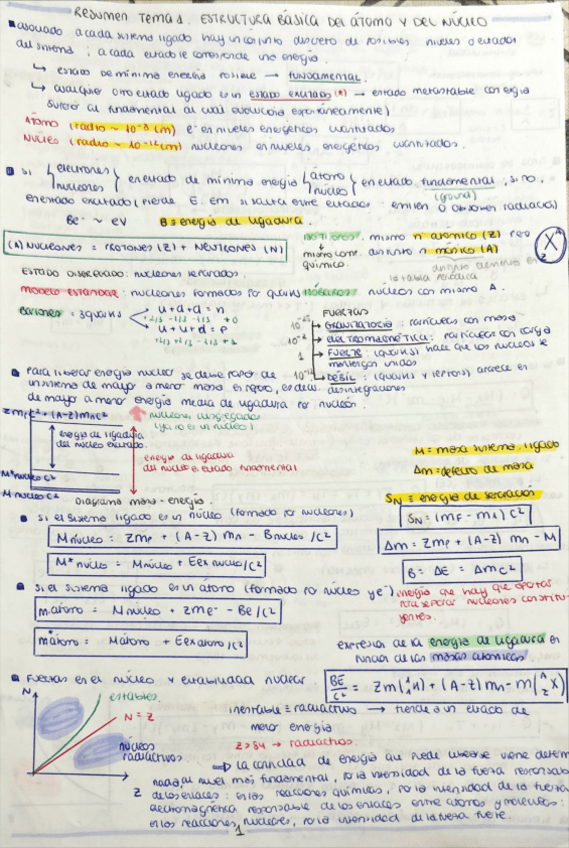 RESUMEN TEMA 1. ESTRUCTURA BÁSICA DEL ÁTOMO Y DEL NÚCLEO
asociado a cada sistema ligado hay un conjunto discreto de posibles niveles o estados
del sistema; a cada estado le corresponde una energía.
↳ estado de mínima energía posible → fundamental.
↳ cualquier otro estado ligado es un estado excitado (*) → estado metaestable con ergía
superior al fundamental al cual evoluciona espontáneamente)
ÁTOMO (radio ~ 10⁻⁸ cm) e⁻ en niveles energéticos cuantizados
NÚCLEO (radio ~ 10⁻¹² cm) nucleones en niveles energéticos cuantizados.
Si {electrones nucleones} en estado de mínima energía {átomo núcleo} en estado fundamental, si no,
(ground)
en estado excitado (pierde E. em si salta entre estados: emiten o absorben radiación)
Be⁻ ~ eV B = energía de ligadura.
(A) NUCLEONES = PROTONES (Z) + NEUTRONES (N)
ISÓTOPOS: mismo nº atómico (Z) pero
mismo comp. químico. distinto n másico (A)
X A Z
la tabla periódica
ESTADO DISGREGADO: nucleones separados.
MODELO ESTÁNDAR: nucleones formados por quarks
ISÓBAROS: núcleos con mismo A.
BARIONES = 3 quarks
u+d+d = n
+2/3 -1/3 -1/3 = 0
u+u+d = p
+2/3 +2/3 -1/3 +1
FUERZAS
GRAVITATORIA: partículas con masa
ELECTROMAGNÉTICA: partículas con carga
1 FUERTE: (quarks) hace que los nucleos se
mantengan unidos
DÉBIL: (quarks y leptones) aparece en
desintegraciones
Para liberar energía nuclear se debe pasar de
un sistema de mayor a menor masa en reposo, es decir,
de mayor a menor energía media de ligadura por nucleón.
Zmpc² + (A-Z)mnc²
nucleones disgregados
(ya no es un núcleo)
energía de ligadura
del núcleo excitado
energía de ligadura
del núcleo e estado fundamental
M*núcleo c²
M núcleo c²
Diagrama masa-energía.
M = masa sistema ligado
Δm = defecto de masa
SN = energía de separación
SN = (mF - mA) c²
Si el sistema ligado es un núcleo (formado por nucleones)
M núcleo = Zmp + (A-Z) mn - Bnucleo/c²
M* núcleo = Mnúcleo + Eex nucleo/c²
Δm = Zmp + (A-Z) mn - M
B = ΔE = Δmc²
Si el sistema ligado es un átomo (formado por núcleo y e⁻)
energía que hay que aportar
para separar nucleones constitu-
yentes.
m átomo = M núcleo + Zme⁻ - Be/c²
m* átomo = Mátomo + Eex átomo/c²
expresión de la energía de ligadura en
función de las masas atómicas
BE/c² = Zm(¹₁H) + (A-Z) mn - m(ᴬzX)
Fuerzas en el núcleo y estabilidad nuclear
N
estables
N = Z
núcleos
radiactivos
Z
inestable = radiactivo → tiende a un estado de
menor energía
Z > 84 → radiactivos.
⟹ La cantidad de energía que puede liberarse viene determi-
nada, al nivel más fundamental, por la intensidad de la fuerza responsable
de los enlaces: en las reacciones químicas, por la intensidad de la fuerza
electromagnética responsable de los enlaces entre átomos y moléculas;
en las reacciones nucleares, por la intensidad de la fuerza fuerte.
1